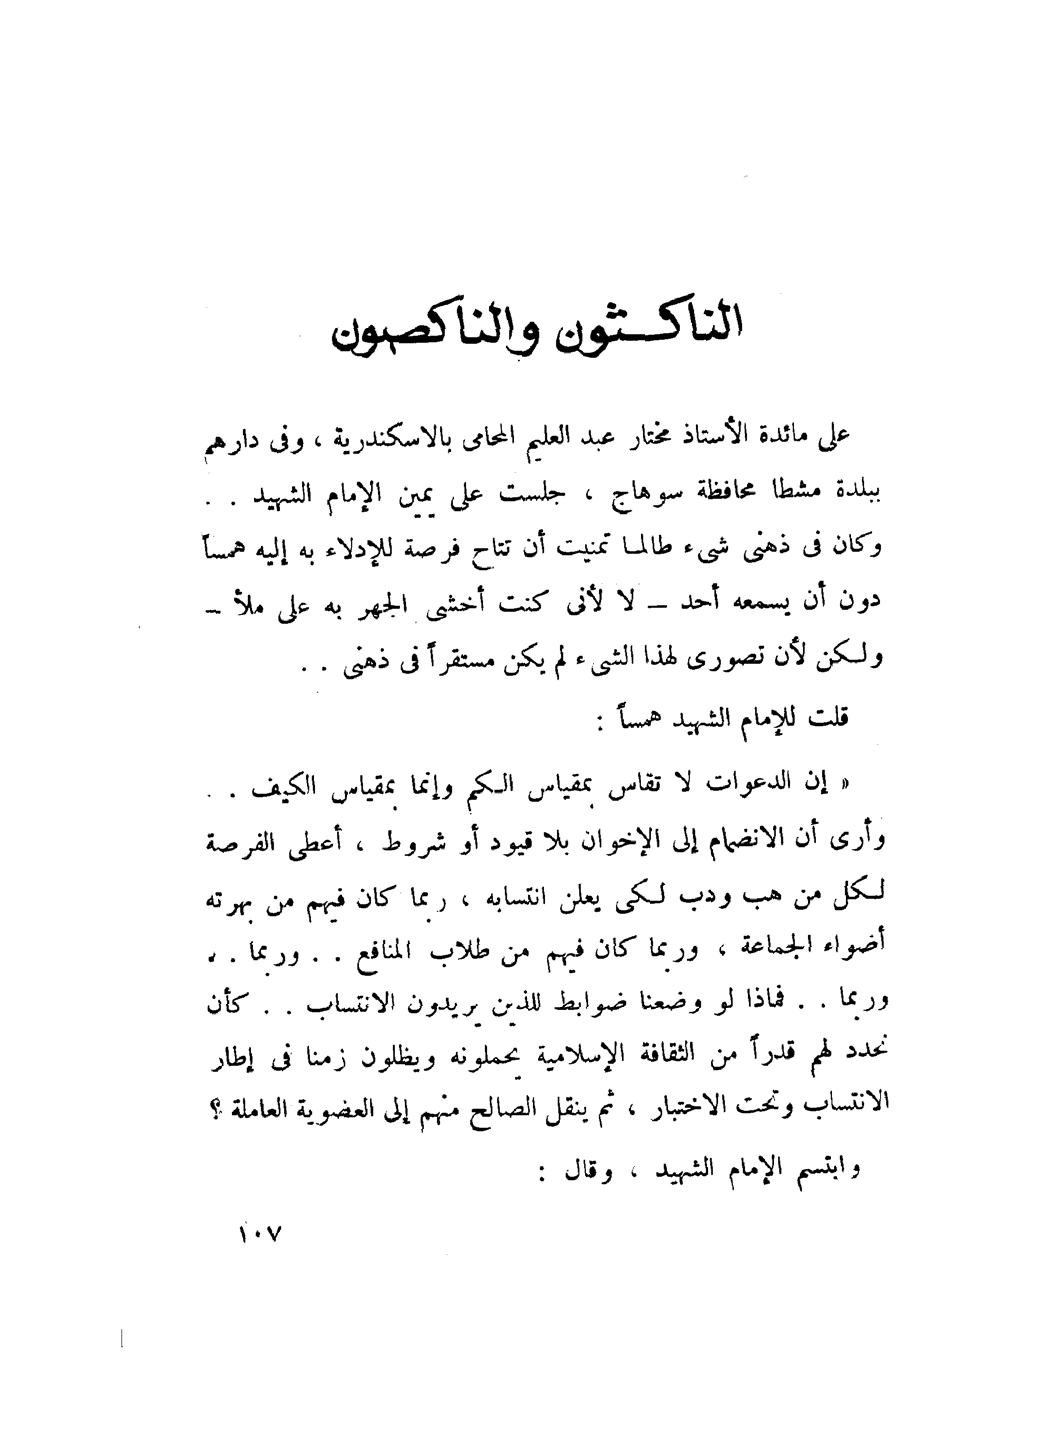 الناكثون والناكصون
على مائدة الأستاذ مختار عبد العليم المحامى بالاسكندرية ، وفى دارهم
ببلدة مشطا محافظة سوهاج ، جلست على يمين الإمام الشهيد . .
وكان فى ذهنى شىء طالما تمنيت أن تتاح فرصة للإدلاء به إليه همساً
دون أن يسمعه أحد – لا لأنى كنت أخشى الجهر به على ملأ –
ولكن لأن تصورى لهذا الشىء لم يكن مستقراً فى ذهنى . .
قلت للإمام الشهيد همساً :
« إن الدعوات لا تقاس بمقياس الكم وإنما بمقياس الكيف . .
وأرى أن الانضمام إلى الإخوان بلا قيود أو شروط ، أعطى الفرصة
لكل من هب ودب لكى يعلن انتسابه ، ربما كان فيهم من بهرته
أضواء الجماعة ، وربما كان فيهم من طلاب المنافع . . وربما . .
وربما . . فماذا لو وضعنا ضوابط للذين يريدون الانتساب . . كأن
نحدد لهم قدراً من الثقافة الإسلامية يحملونه ويظلون زمنا فى إطار
الانتساب وتحت الاختبار ، ثم ينقل الصالح منهم إلى العضوية العاملة ؟
وابتسم الإمام الشهيد ، وقال :
١٠٧